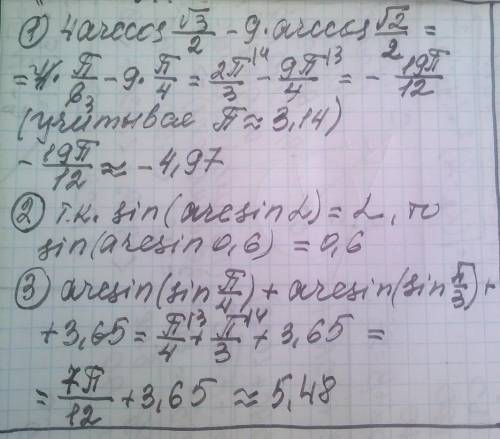 ① 4arccos √3/2 - 9·arccos √2/2 =
= 4·π/6 3 - 9·π/4 = 2π/3 \4 - 9π/4 \3 = - 19π/12
(учитывая π ≈ 3,14)
- 19π/12 ≈ -4,97
② т.к. sin(arcsin α) = α, то
sin(arcsin 0,6) = 0,6
③ arcsin(sin π/4) + arcsin(sin π/3) +
+ 3,65 = π/4 \3 + π/3 \4 + 3,65 =
= 7π/12 + 3,65 ≈ 5,48